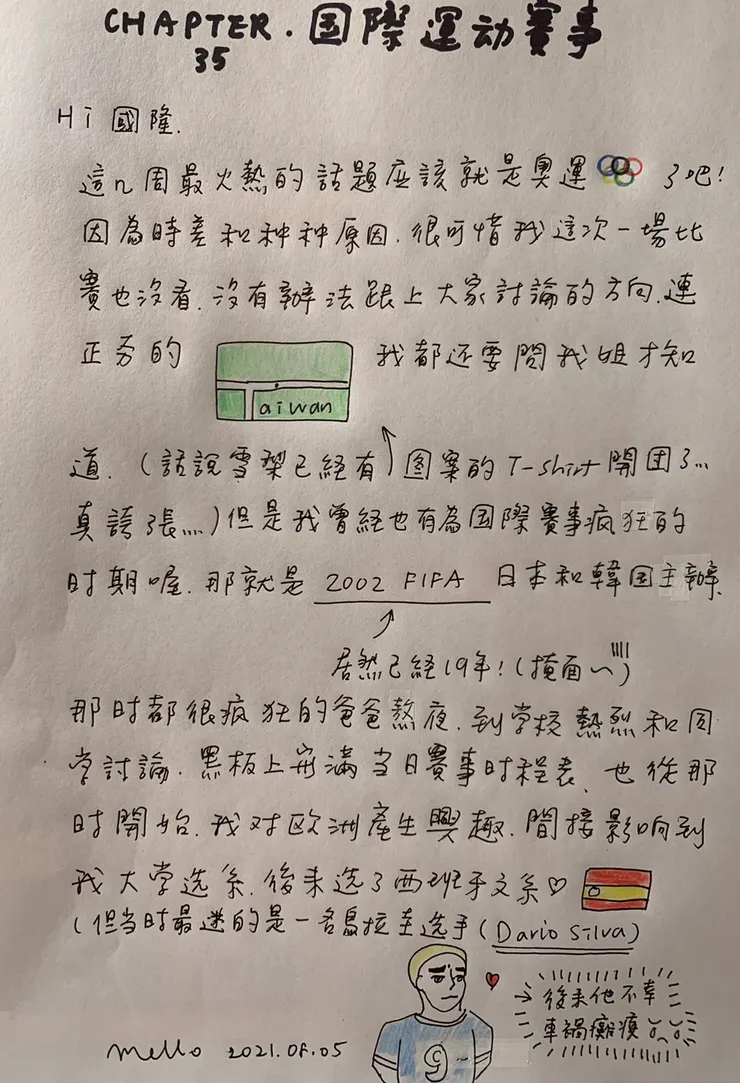 CHAPTER. 国際運动賽事
35
Hi 國隆.
這n周最火熱的話題應該就是奧運 了吧!
因為時差和种种原因.很可惜我這次一場比
賽也沒看.沒有辦法跟上大家討論的方向.連
正夯的 我都还要問我姐才知
aiwan
道.(話說雪梨已經有 图案的T-shirt開団了...
真誇張...)但是我曾経也有為国際賽事疯狂的
时期喔.那就是 2002 FIFA 日本和韓国主辦.
居然已経19年!(掩面~)
那时都很疯狂的爸爸熬夜.到学校熱烈和同
学討論.黑板上寫滿当日賽事时程表、也從那
时開始.我对欧洲產生興趣.間接影响到
我大学选系.後来选了西班牙文系♡
(但当时最迷的是一名烏拉圭选手(Dario Silva)
→後来他不幸
車禍癱瘓
9
mello 2021.08.05